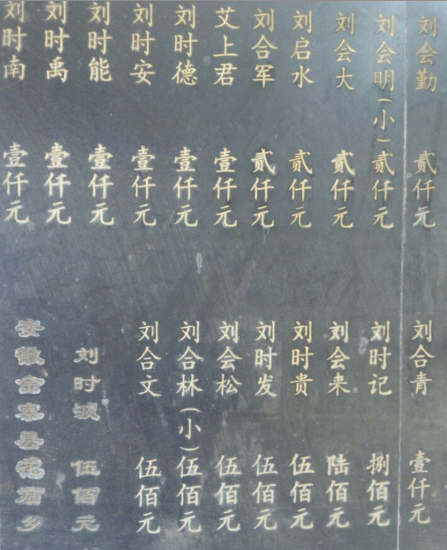 刘会勤 贰仟元
刘会明(小)贰仟元
刘会大 贰仟元
刘启水 贰仟元
刘合军 贰仟元
艾上君 壹仟元
刘时德 壹仟元
刘时安 壹仟元
刘时能 壹仟元
刘时禹 壹仟元
刘时南 壹仟元
刘合青 壹仟元
刘时记 捌佰元
刘会来 陆佰元
刘时贵 伍佰元
刘时发 伍佰元
刘会松 伍佰元
刘合林(小)伍佰元
刘合文 伍佰元
刘时 伍佰元
安徽金寨县花石乡